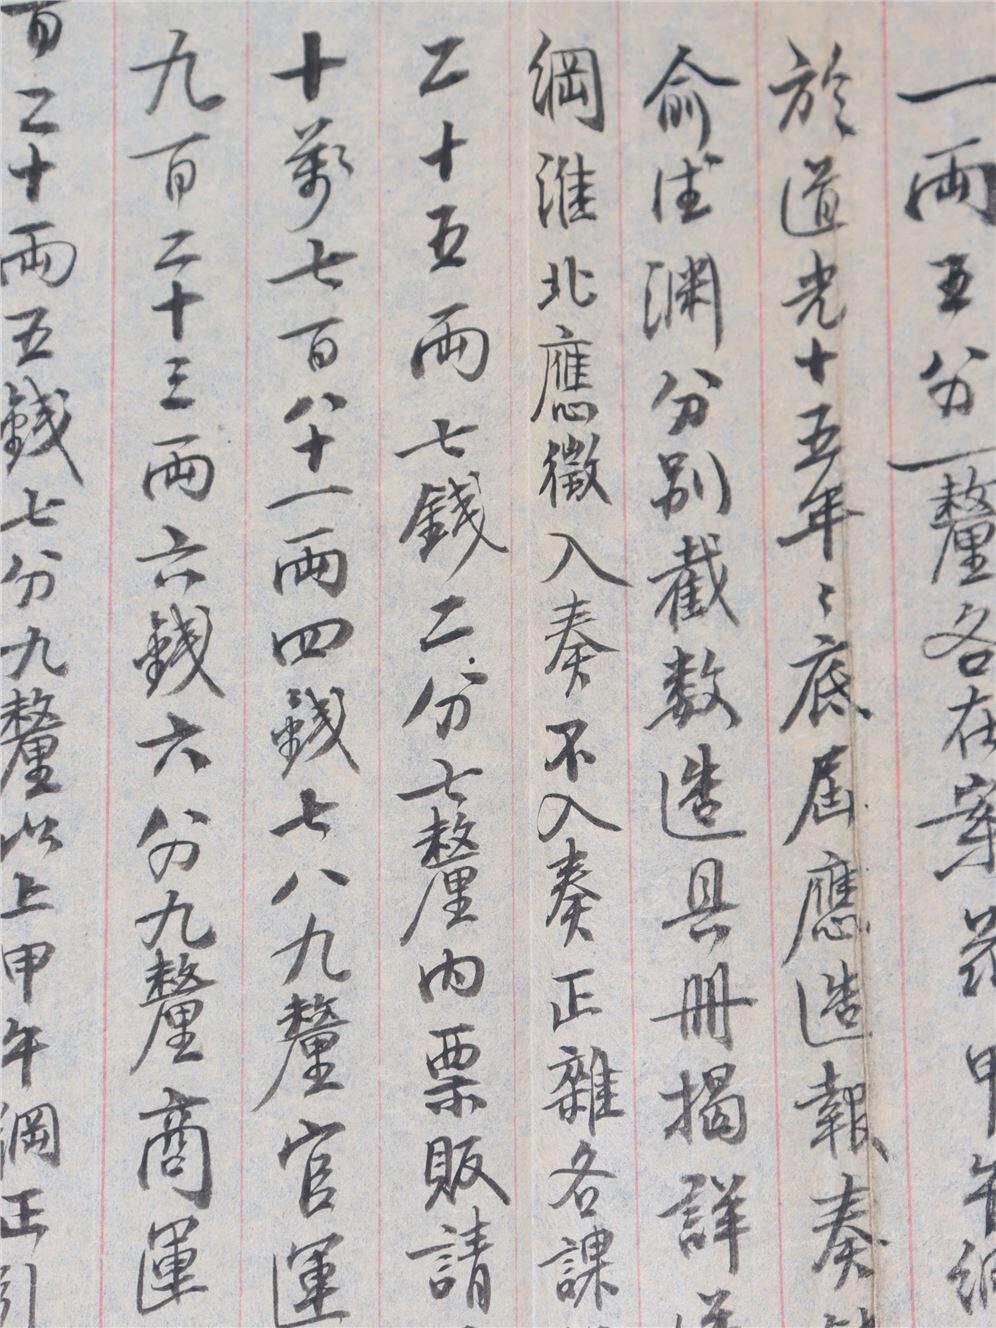 一両五分一釐各在案茲甲午綱
於道光十五年〻底屆應造報奏
俞德淵分別截數造具冊揭詳送
綱淮北應徵入奏不入奏正雜各課
二十五両七錢二分七釐內票販請
十萬七百八十一両四錢七八九釐官運
九百二十三両六錢六分九釐商運
百二十両五錢七分九釐以上甲午綱正引